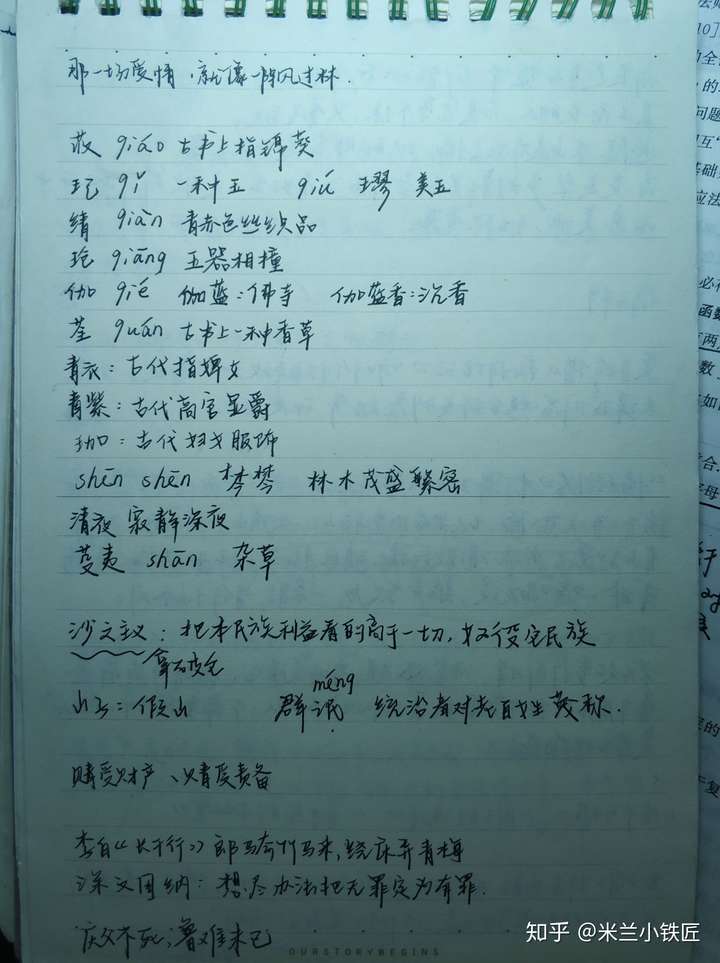 那一场爱情,就像一阵风过林.
荍 qiáo 古书上指锦葵
玘 qǐ 一种玉 qiú 璆 美玉
綪 qiàn 青赤色丝织品
玱 qiāng 玉器相撞
伽 qié 伽蓝:佛寺 伽蓝香:沉香
荃 quán 古书上一种香草
青衣:古代指婢女
青紫:古代高官显爵
珈:古代妇女服饰
shēn shēn 棽棽 林木茂盛繁密
清夜 寂静深夜
芟夷 shān 杂草
沙文主义:把本民族利益看的高于一切,奴役它民族
拿破仑
méng
山子:假山 群氓 统治者对老百姓蔑称.
赌受财产、
李白《长干行》郎骑竹马来,绕床弄青梅
深文周纳:想尽办法把无罪定为有罪.
庆父不死,鲁难未已
OURSTORYBEGINS
知乎 @米兰小铁匠